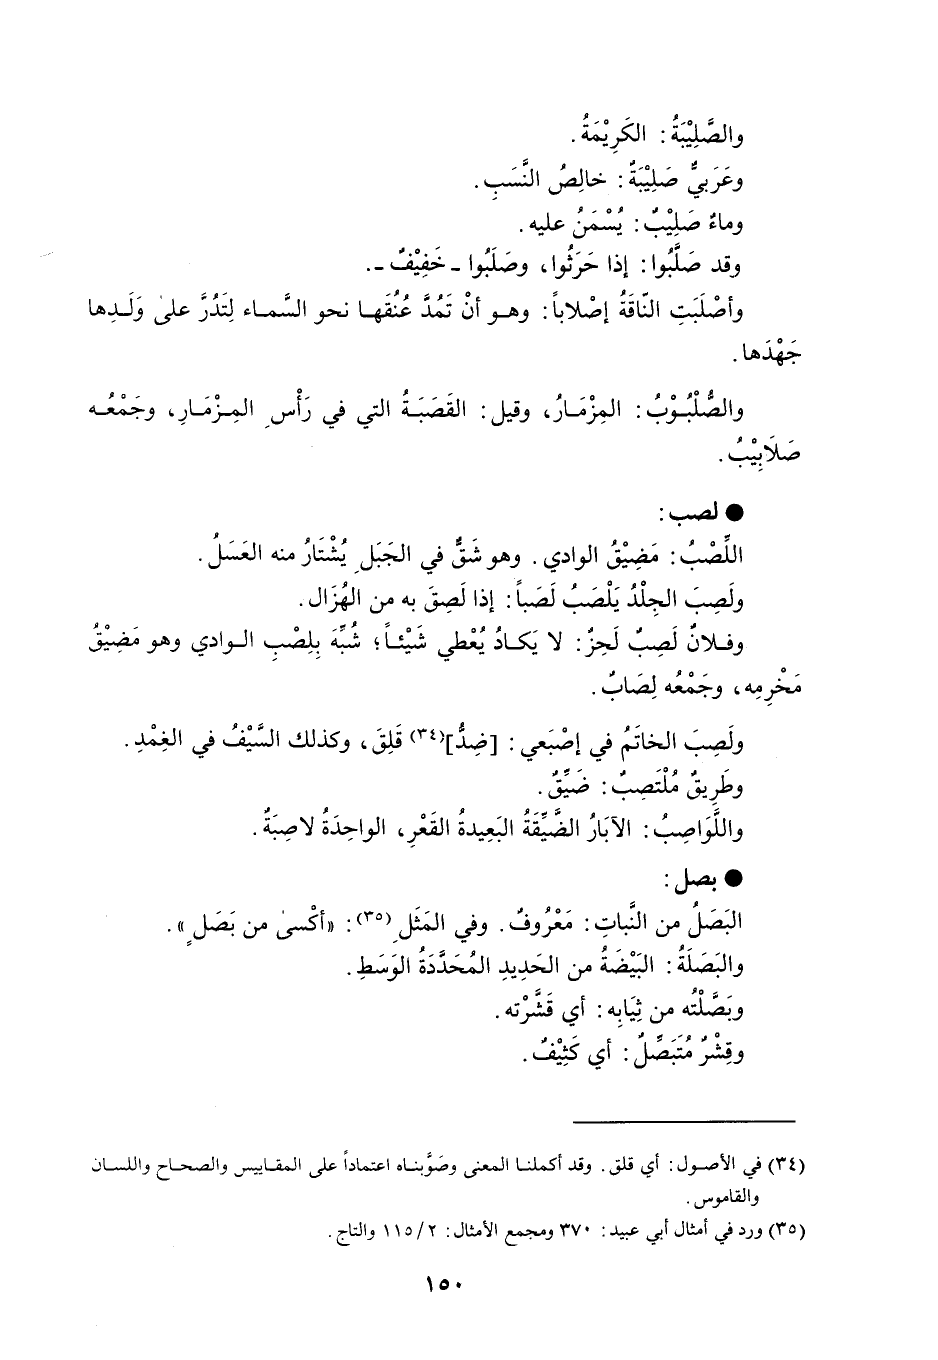 والصَّلِيْبَةُ: الكَرِيْمَةُ.
وعَرَبيٌّ صَلِيْبَةٌ: خالِصُ النَّسَبِ.
وماءٌ صَلِيْبٌ: يُسْمَنُ عليه.
وقد صَلَّبُوا: إذا حَرَثُوا، وصَلَبُوا ـ خَفِيْفٌ ـ.
وأصْلَبَتِ النّاقَةُ إصْلاباً: وهو أنْ تَمُدَّ عُنُقَها نحو السَّماء لِتَدُرَّ على وَلَدِها
جَهْدَها.
والصُّلْبُوْبُ: المِزْمَارُ، وقيل: القَصَبَةُ التي في رَأْسِ المِزْمَارِ، وجَمْعُه
صَلَابِيْبُ.
● لصب:
اللِّصْبُ: مَضِيْقُ الوادي. وهو شَقٌّ في الجَبَلِ يُشْتَارُ منه العَسَلُ.
ولَصِبَ الجِلْدُ يَلْصَبُ لَصَباً: إذا لَصِقَ به من الهُزَال.
وفلانٌ لَصِبٌ لَحِزٌ: لا يَكادُ يُعْطي شَيْئاً؛ شُبِّهَ بِلِصْبِ الوادي وهو مَضِيْقُ
مَخْرِمِه، وجَمْعُه لِصَابٌ.
ولَصِبَ الخاتَمُ في إصْبَعي: [ضِدُّ](٣٤) قَلِقَ، وكذلك السَّيْفُ في الغِمْدِ.
وطَرِيقٌ مُلْتَصِبٌ: ضَيِّقٌ.
واللَّوَاصِبُ: الآبَارُ الضَّيِّقَةُ البَعِيدةُ القَعْرِ، الواحِدَةُ لاصِبَةٌ.
● بصل:
البَصَلُ من النَّباتِ: مَعْرُوفٌ. وفي المَثَلِ(٣٥): «أكْسىٰ من بَصَلٍ».
والبَصَلَةُ: البَيْضَةُ من الحَدِيدِ المُحَدَّدَةُ الوَسَطِ.
وبَصَّلْتُه من ثِيَابِه: أي قَشَّرْته.
وقِشْرٌ مُتَبَصِّلٌ: أي كَثِيْفٌ.
(٣٤) في الأصول: أي قلق. وقد أكملنا المعنى وصَوَّبناه اعتماداً على المقاييس والصحاح واللسان
والقاموس.
(٣٥) ورد في أمثال أبي عبيد: ٣٧٠ ومجمع الأمثال: ٢/ ١١٥ والتاج.
١٥٠